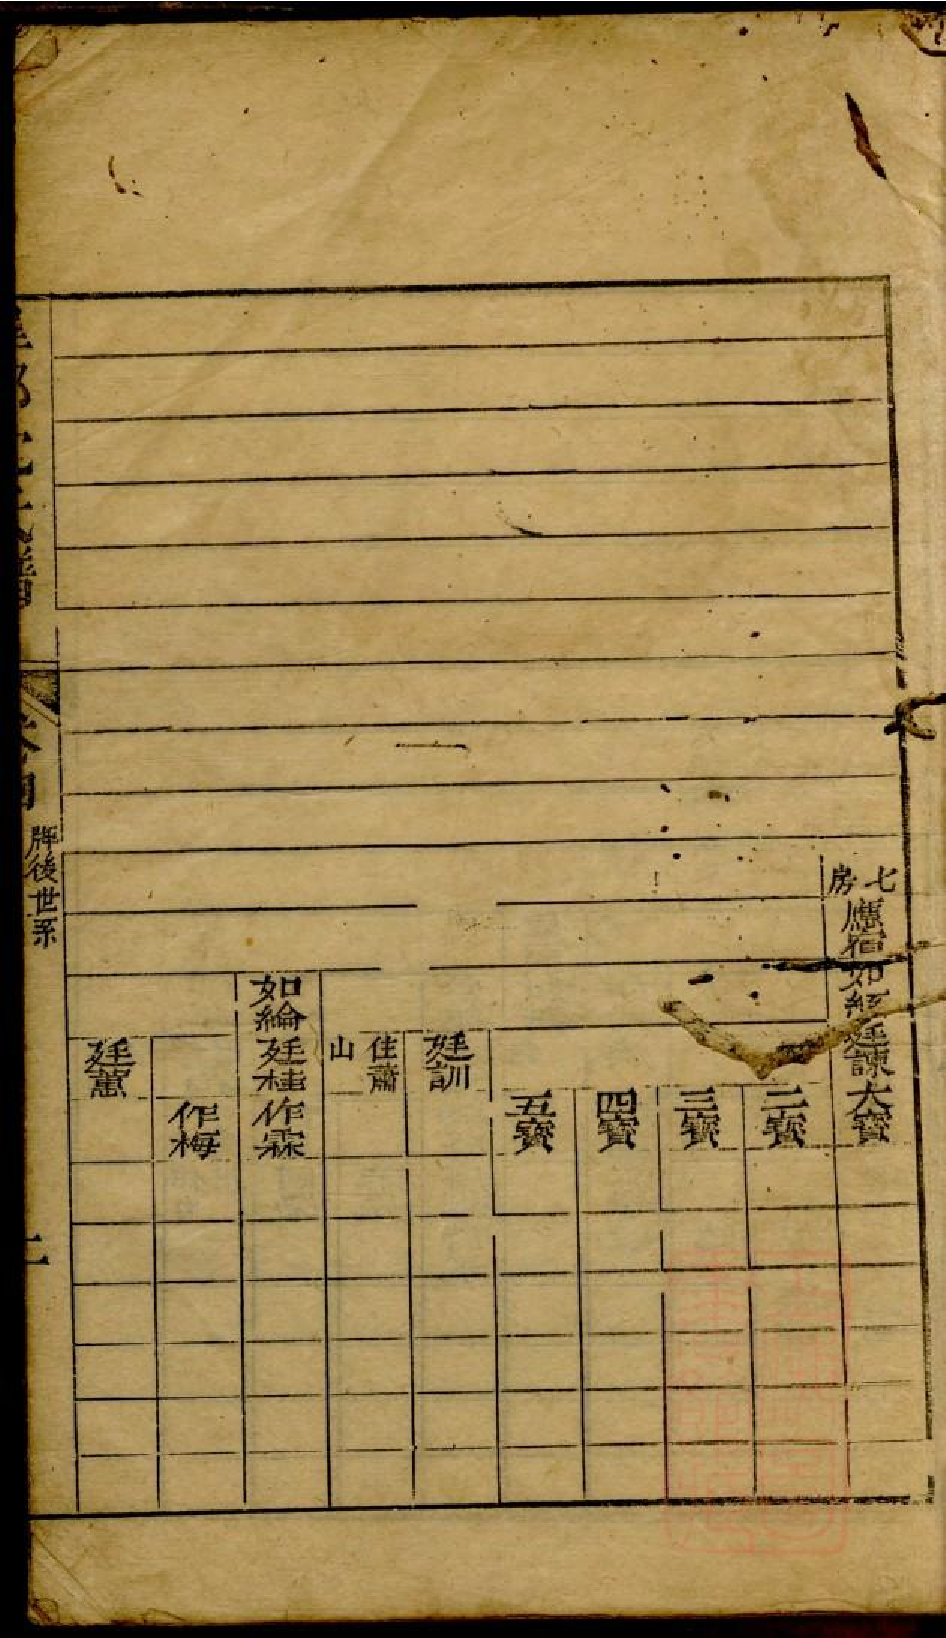 七房
應宿如經廷諫大寶
二寶
三寶
四寶
五寶
廷訓
住蕭山
如綸廷桂作霖
作梅
廷蕙
牌後世系